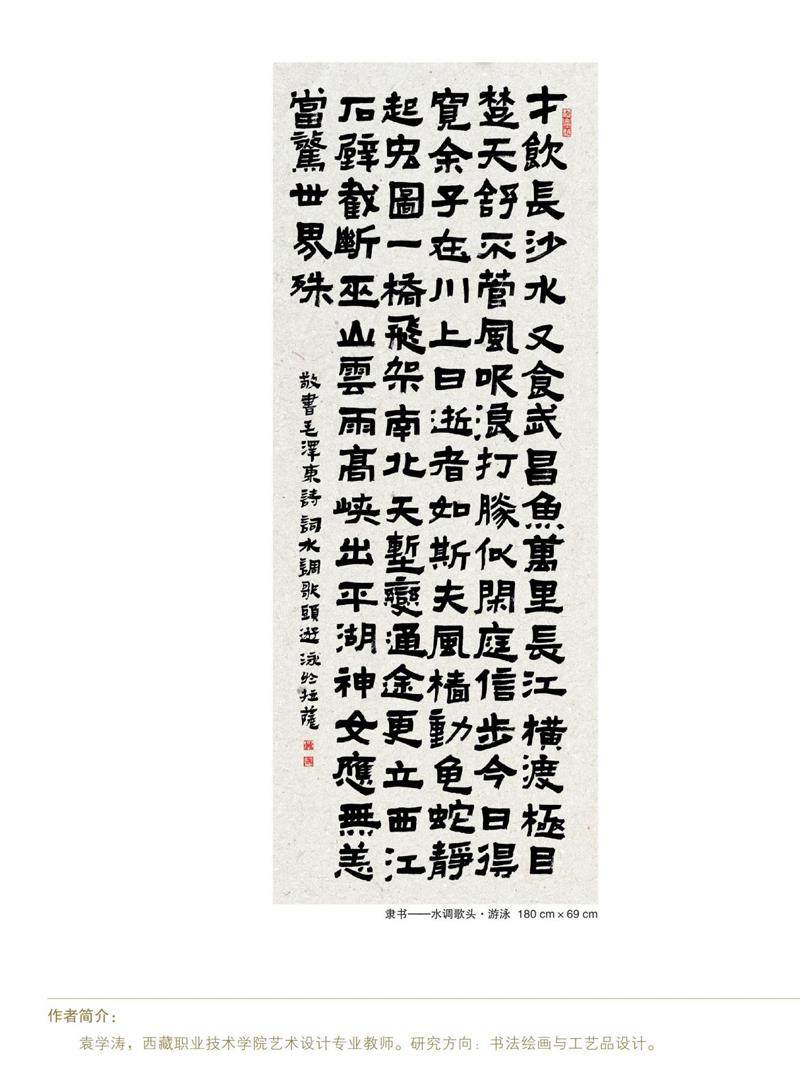 才飲長沙水又食武昌魚萬里長江橫渡極目
楚天舒不管風吹浪打勝似閑庭信步今日得
寬余子在川上曰逝者如斯夫風檣動龟蛇靜
起宏圖一橋飛架南北天塹變通途更立西江
石壁截斷巫山雲雨高峽出平湖神女應無恙
當驚世界殊
敬書毛澤東詩詞水調歌頭遊泳於拉薩
隶书——水调歌头·游泳 180 cm × 69 cm
作者简介：
袁学涛，西藏职业技术学院艺术设计专业教师。研究方向：书法绘画与工艺品设计。